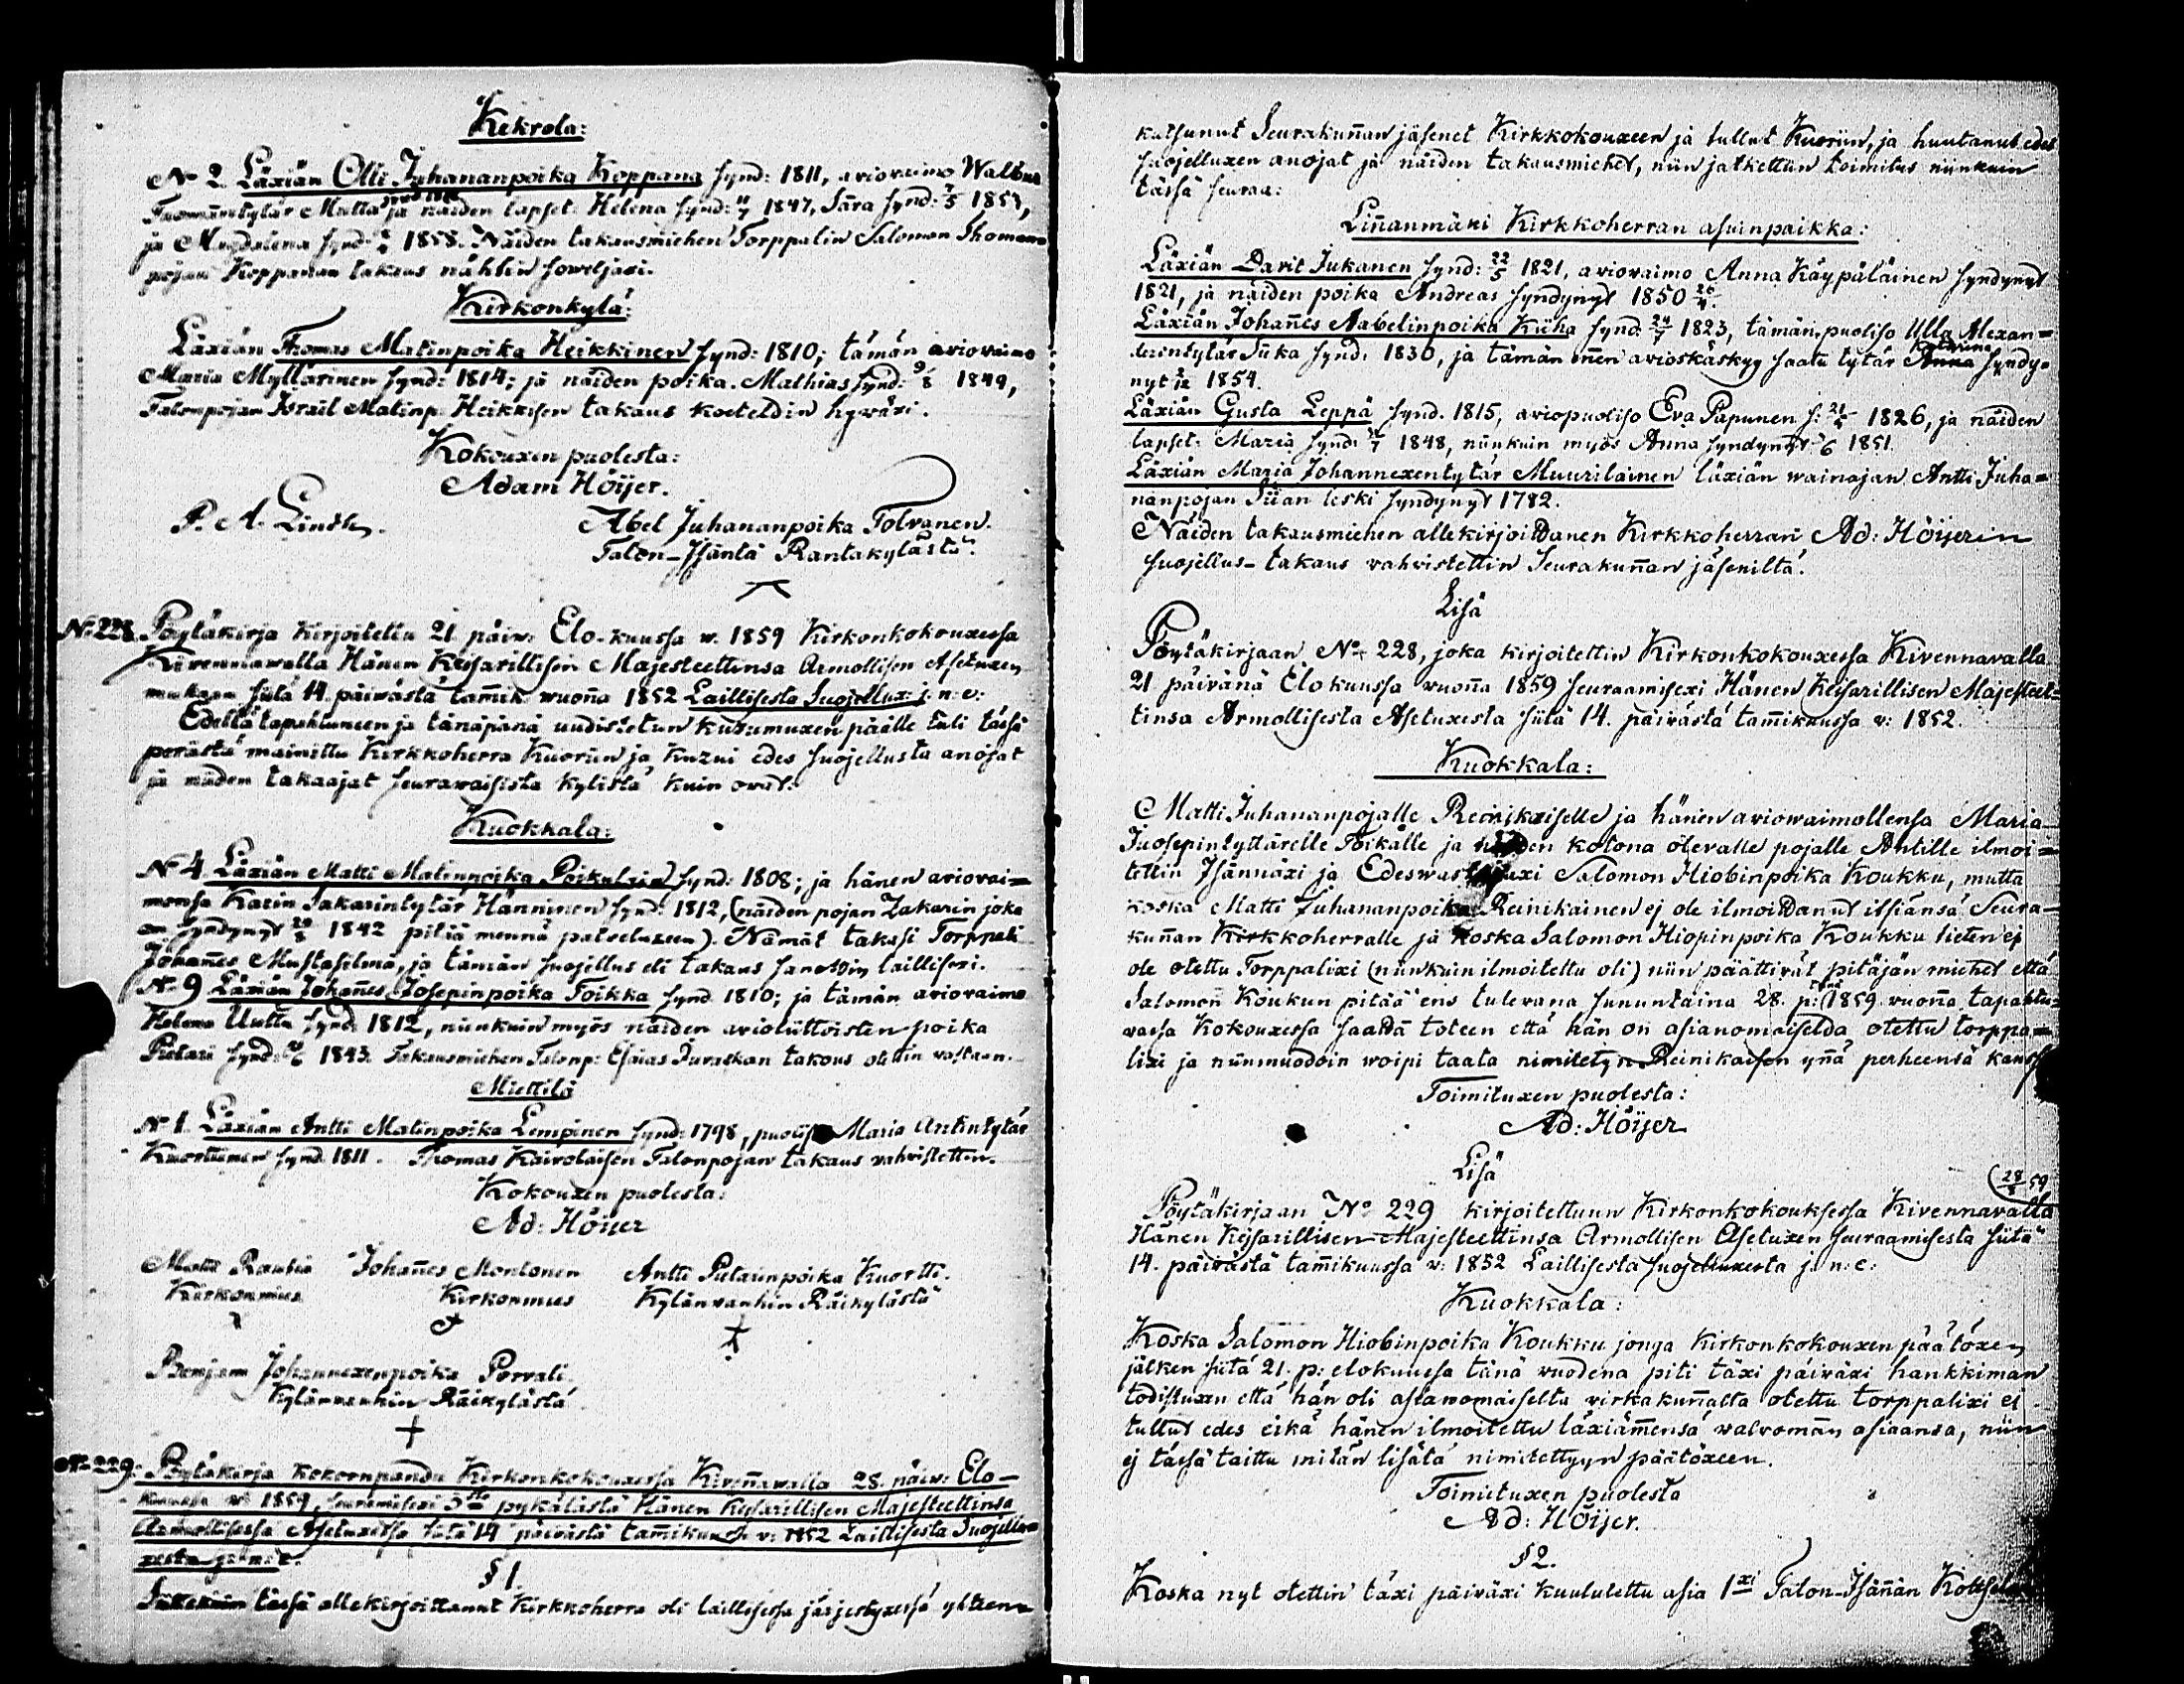 Kekrola:
No 2 Läxiän Olli Juhananpoika Koppana synd: 1811, aviovaimo Walbor
Tuomantytär Matta ja näiden lapset: Helena synd: 1847, Sara synd: 7/5 1853,
ja Magdalena synd: 1858. Näiden takausmiehen Torppalin Salomon Thoman
pojan Koppanan takaus nähtin soweljaxi.
Kirkonkylä:
Läxiän Thomas Matinpoika Heikkinen synd: 1810; tämän aviovaimo
Maria Myllärinen synd: 1814; ja näiden poika Mathias synd: 9/8 1849,
Talonpojan Israel Matinp. Heikkisen takaus koeteldin hywäxi.
Kokouxen puolesta:
Adam Höijer.
P. A. Lindh.
Abel Juhananpoika Tolvanen.
Talon-Isäntä Rantakylästä.
No 228. Pöytäkirja Kirjoitettu 21. päiw: Elo-kuussa w. 1859 Kirkonkokouxessa
Kivennawalla Hänen Keisarillisen Majesteettinsa Armollisen Asetuxen
mukaan siitä 14. päiwästä tam̄ik. wuon̄a 1852 Laillisesta Suojellux: j: n: e:
Edellä tapahtuneen ja tänäpänä uudistetun kuzumuxen päälle tuli tässä
perästä mainittu Kirkkoherra Kuoriin ja kuzui edes suojellusta anojat
ja niiden takaajat seurawaisista kylistä kuin ovat:
Kuokkala:
No 4 Läxiän Matti Matinpoika synd: 1808; ja hänen aviovai=
monsa Karin Sakarintytär Hänninen synd: 1812, (näiden pojan Zakarin joka
on syndynyt 1842 pitää mennä palveluxeen). Nämät takasi Torppali
Johan̄es Mustasilmä, ja tämän suojellus eli takaus sanottiin laillisexi.
No 9 Läxiän Johan̄es Josepinpoika Toikka synd. 1810; ja tämän aviovaimo
Helena Uuttu synd: 1812, niinkuin myös näiden avioliittoisten poika
Pietari synd: 1843. Takausmiehen Talonp: Esaias takaus otettin vastaan.
Miettilä
No 1. Läxiän Antti Matinpoika Lempinen synd: 1798, puoliso Maria Antintytär
synd. 1811. Thomas Kairolaisen Talonpojan takaus vahvistettin.
Kokouxen puolesta:
Ad: Höijer
Matti Rautia Johan̄es Montonen Antti Pietarinpoika Kuortti.
Kirkonmies Kirkonmies Kylänvanhin Räikylästä
Benjam Johannexenpoika Porvali.
Kylänvanhin Räikylästä
No 229. Pöytäkirja kokoonpandu Kirkonkokouxessa Kiven̄awalla 28. päiw: Elo-
kuussa w: 1859, seuraamisexi pykälästä Hänen Keisarillisen Majesteettinsa
Armollisessa Asetuxessa siitä 14 päivästä tam̄ikuussa v: 1852 Laillisesta Suojellu=
xesta j: n: e.
§ 1.
Sittekuin tässä allekirjoittanut Kirkkoherra oli laillisessa järjestyxessä yhteen-
kutsunut Seurakun̄an jäsenet Kirkkokouxeen ja tullut Kuoriin, ja huutanut edes
suojelluxen anojat ja näiden takausmiehet, niin jatkettiin toimitus niinkuin
tässä seuraa:
Lin̄anmäki Kirkkoherran asuinpaikka:
Läxiän Davit Jukanen synd: 22/5 1821, aviovaimo Anna Käypäläinen syndynyt
1821, ja näiden poika Andreas syndynyt 1850 26/4.
Läxiän Johan̄es Aabelinpoika Kiiha synd: 24/7 1823, tämän puoliso Ulla Alexan=
derintytär Siika synd. 1830, ja tämän en̄en avioskäskyy saatu tytär Anna Katarina syndy=
nyt 1854.
Läxiän Gusta Leppä synd. 1815, aviopuoliso Eva Papunen s: 1826, ja näiden
lapset: Maria synd: 1848, niinkuin myös Anna syndynyt 1851.
Läxiän Maria Johannexentytär Muurilainen läxiän wainajan Antti Juha=
nanpojan Siian leski syndynyt 1782.
Näiden takausmiehen allekirjoittanen Kirkkoherran Ad: Höijerin
suojellus-takaus vahvistettin Seurakun̄an jäseniltä.
Lisä
Pöytäkirjaan No 228, joka kirjoitettin Kirkonkokouxessa Kivennavalla
21 päivänä Elokuussa vuon̄a 1859 seuraamisexi Hänen Keisarillisen Majesteet=
tinsa Armollisesta Asetuxesta siitä 14. päivästä tam̄ikuussa v: 1852.
Kuokkala:
Matti Juhananpojalle Reinikaiselle ja hänen aviowaimollensa Maria
Juosepintyttärelle Toikalle ja näiden kotona olevalle pojalle Antille ilmoi=
tettin Isännäxi ja Edeswastajaxi Salomon Hiobinpoika Koukku, mutta
koska Matti Juhananpoika Reinikainen ej ole ilmoittanut itsiänsä Seura-
kun̄an Kirkkoherralle ja koska Salomon Hiopinpoika Koukku tieten ej
ole otettu Torppalixi (niinkuin ilmoitettu oli) niin päättivät pitäjän miehet että
Salomon Koukun pitää ens tulevana sununtaina 28. p: tänä 1859 vuon̄a tapahtu=
vassa kokouxessa saattaa toteen että hän on asianomaiselda otettu torppa=
lixi ja niinmuodoin woipi taata nimitetyn Reinikaisen yn̄ä perheensä kanssa
Toimituxen puolesta:
Ad: Höijer
Lisä
28/8 59
Pöytäkirjaan No 229 kirjoitettuun Kirkonkokouksessa Kivennavalla
Hänen Keisarillisen Majesteettinsa Armollisen Asetuxen seuraamisesta siitä
14. päivästä tam̄ikuussa v: 1852 Laillisesta suojelluxesta j. n: e:
Kuokkala:
Koska Salomon Hiobinpoika Koukku jonga Kirkonkokouxen päätöxen
jälken siitä 21. p: elokuussa tänä vuodena piti täxi päiväxi hankkiman
todistuxen että hän oli asianomaiselta virkakun̄alta otettu torppalixi ei
tullut edes eikä hänen ilmoitettu läxiäm̄ensä walvoman asiaansa, niin
ej tässä taittu mitän lisätä nimitettyyn päätöxeen.
Toimituxen puolesta
Ad: Höijer.
§ 2.
Koska nyt otettin täxi päiväxi kuulutettu asia 1xi Talon-Isän̄än